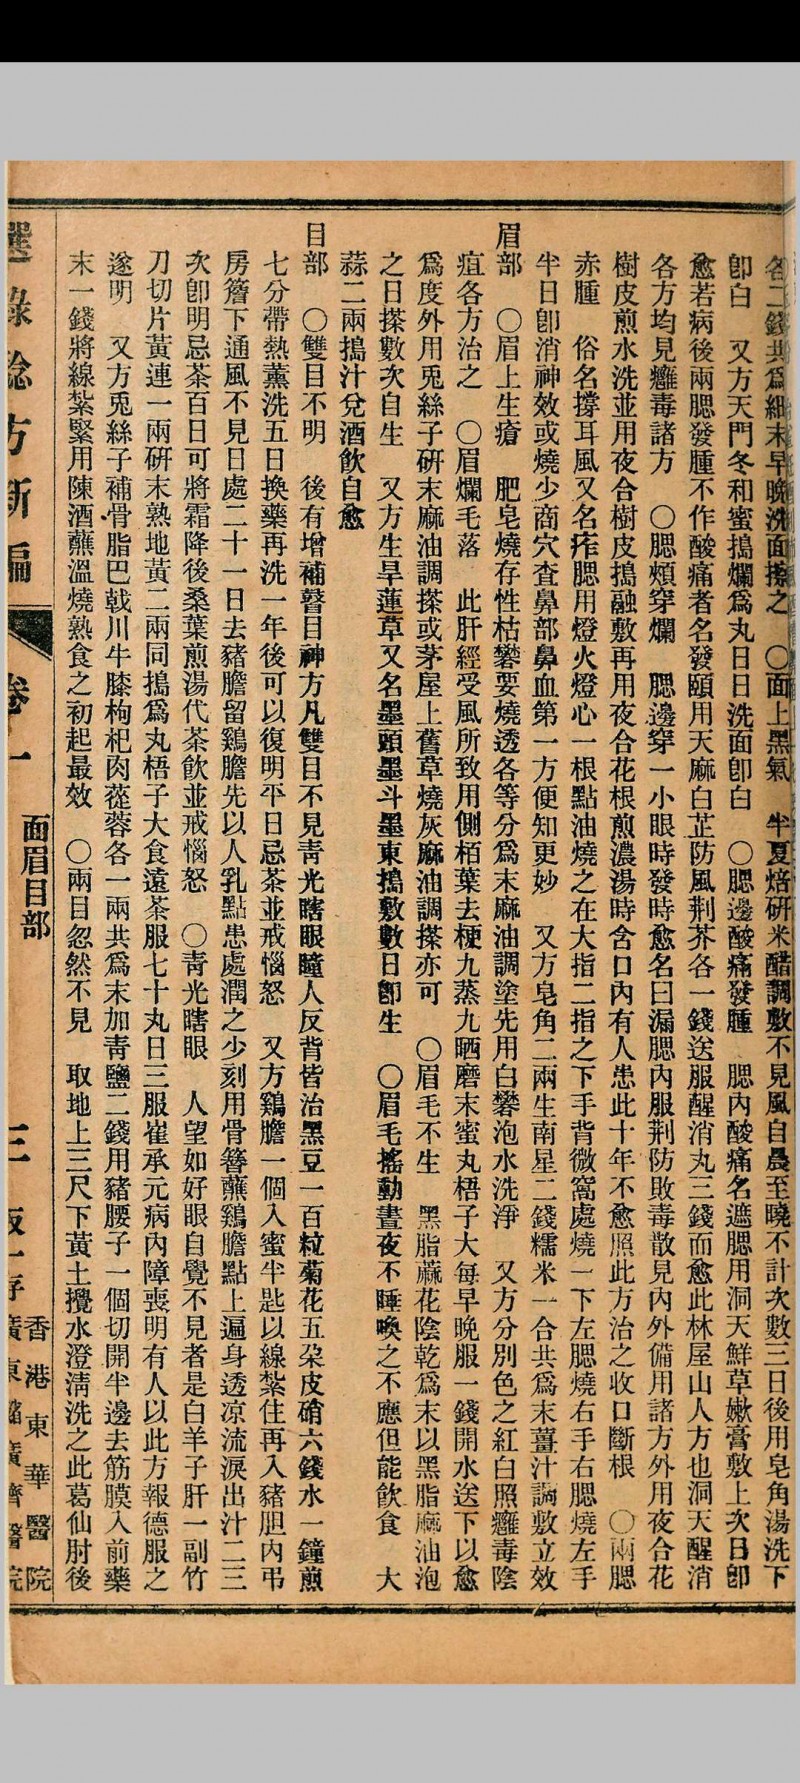 各二錢共爲細末早晚洗面擦之　〇面上黑氣　半夏焙研米醋調敷不見風自晨至曉不計次數三日後用皂角湯洗下
卽白　又方天門冬和蜜搗爛爲丸日日洗面卽白　〇腮邊酸痛發腫　腮內酸痛名遮腮用洞天鮮草嫩膏敷上次日卽
愈若病後兩腮發腫不作酸痛者名發頤用天麻白芷防風荆芥各一錢送服醒消丸三錢而愈此林屋山人方也洞天醒消
各方均見癰毒諸方　〇腮頰穿爛　腮邊穿一小眼時發時愈名曰漏腮內服荆防敗毒散見內外備用諸方外用夜合花
樹皮煎水洗並用夜合樹皮搗融敷再用夜合花根煎濃湯時含口內有人患此十年不愈照此方治之收口斷根　〇兩腮
赤腫　俗名撐耳風又名痄腮用燈火燈心一根點油燒之在大指二指之下手背微窩處燒一下左腮燒右手右腮燒左手
半日卽消神效或燒少商穴查鼻部鼻血第一方便知更妙　又方皂角二兩生南星二錢糯米一合共爲末薑汁調敷立效
眉部　〇眉上生瘡　肥皂燒存性枯礬要燒透各等分爲末麻油調塗先用白礬泡水洗淨　又方分別色之紅白照癰毒陰
疽各方治之　〇眉爛毛落　此肝經受風所致用側栢葉去梗九蒸九晒磨末蜜丸梧子大每早晚服一錢開水送下以愈
爲度外用兎絲子研末麻油調搽或茅屋上舊草燒灰麻油調搽亦可　〇眉毛不生　黑脂蔴花陰乾爲末以黑脂麻油泡
之日搽數次自生　又方生旱蓮草又名墨頭墨斗墨東搗敷數日卽生　〇眉毛搖動晝夜不睡喚之不應但能飲食　大
蒜二兩搗汁兌酒飲自愈
目部　〇雙目不明　後有增補瞽目神方凡雙目不見靑光瞎眼瞳人反背皆治黑豆一百粒菊花五朶皮硝六錢水一鐘煎
七分帶熱薰洗五日換藥再洗一年後可以復明平日忌茶並戒惱怒　又方鷄膽一個入蜜半匙以線紮住再入豬胆內弔
房簷下通風不見日處二十一日去豬膽留鷄膽先以人乳點患處潤之少刻用骨簪蘸鷄膽點上遍身透凉流淚出汁二三
次卽明忌茶百日可將霜降後桑葉煎湯代茶飲並戒惱怒　〇靑光瞎眼　人望如好眼自覺不見者是白羊子肝一副竹
刀切片黃連一兩研末熟地黃二兩同搗爲丸梧子大食遠茶服七十丸日三服崔承元病內障喪明有人以此方報德服之
遂明　又方兎絲子補骨脂巴戟川牛膝枸杞肉蓯蓉各一兩共爲末加靑鹽二錢用豬腰子一個切開半邊去筋膜入前藥
末一錢將線紮緊用陳酒蘸溫燒熟食之初起最效　〇兩目忽然不見　取地上三尺下黃土攪水澄淸洗之此葛仙肘後
選錄驗方新編　卷一　面眉目部　三　版一存　香港東華醫院　廣東省廣濟醫院